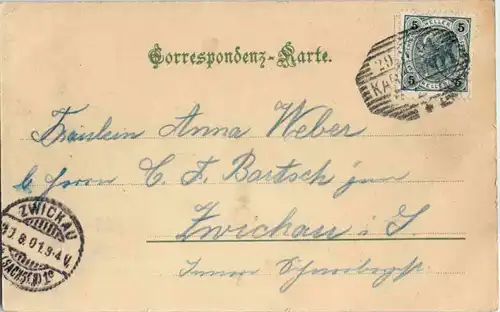 Correspondenz-Karte.
5 HELLER 5
5 5
29
KA
Fräulein Anna Weber
b/ Herrn C. F. Bartsch jun
Zwickau i. S.
Innere
ZWICKAU
8.01.3-4 V.
(SACHSEN) 1c